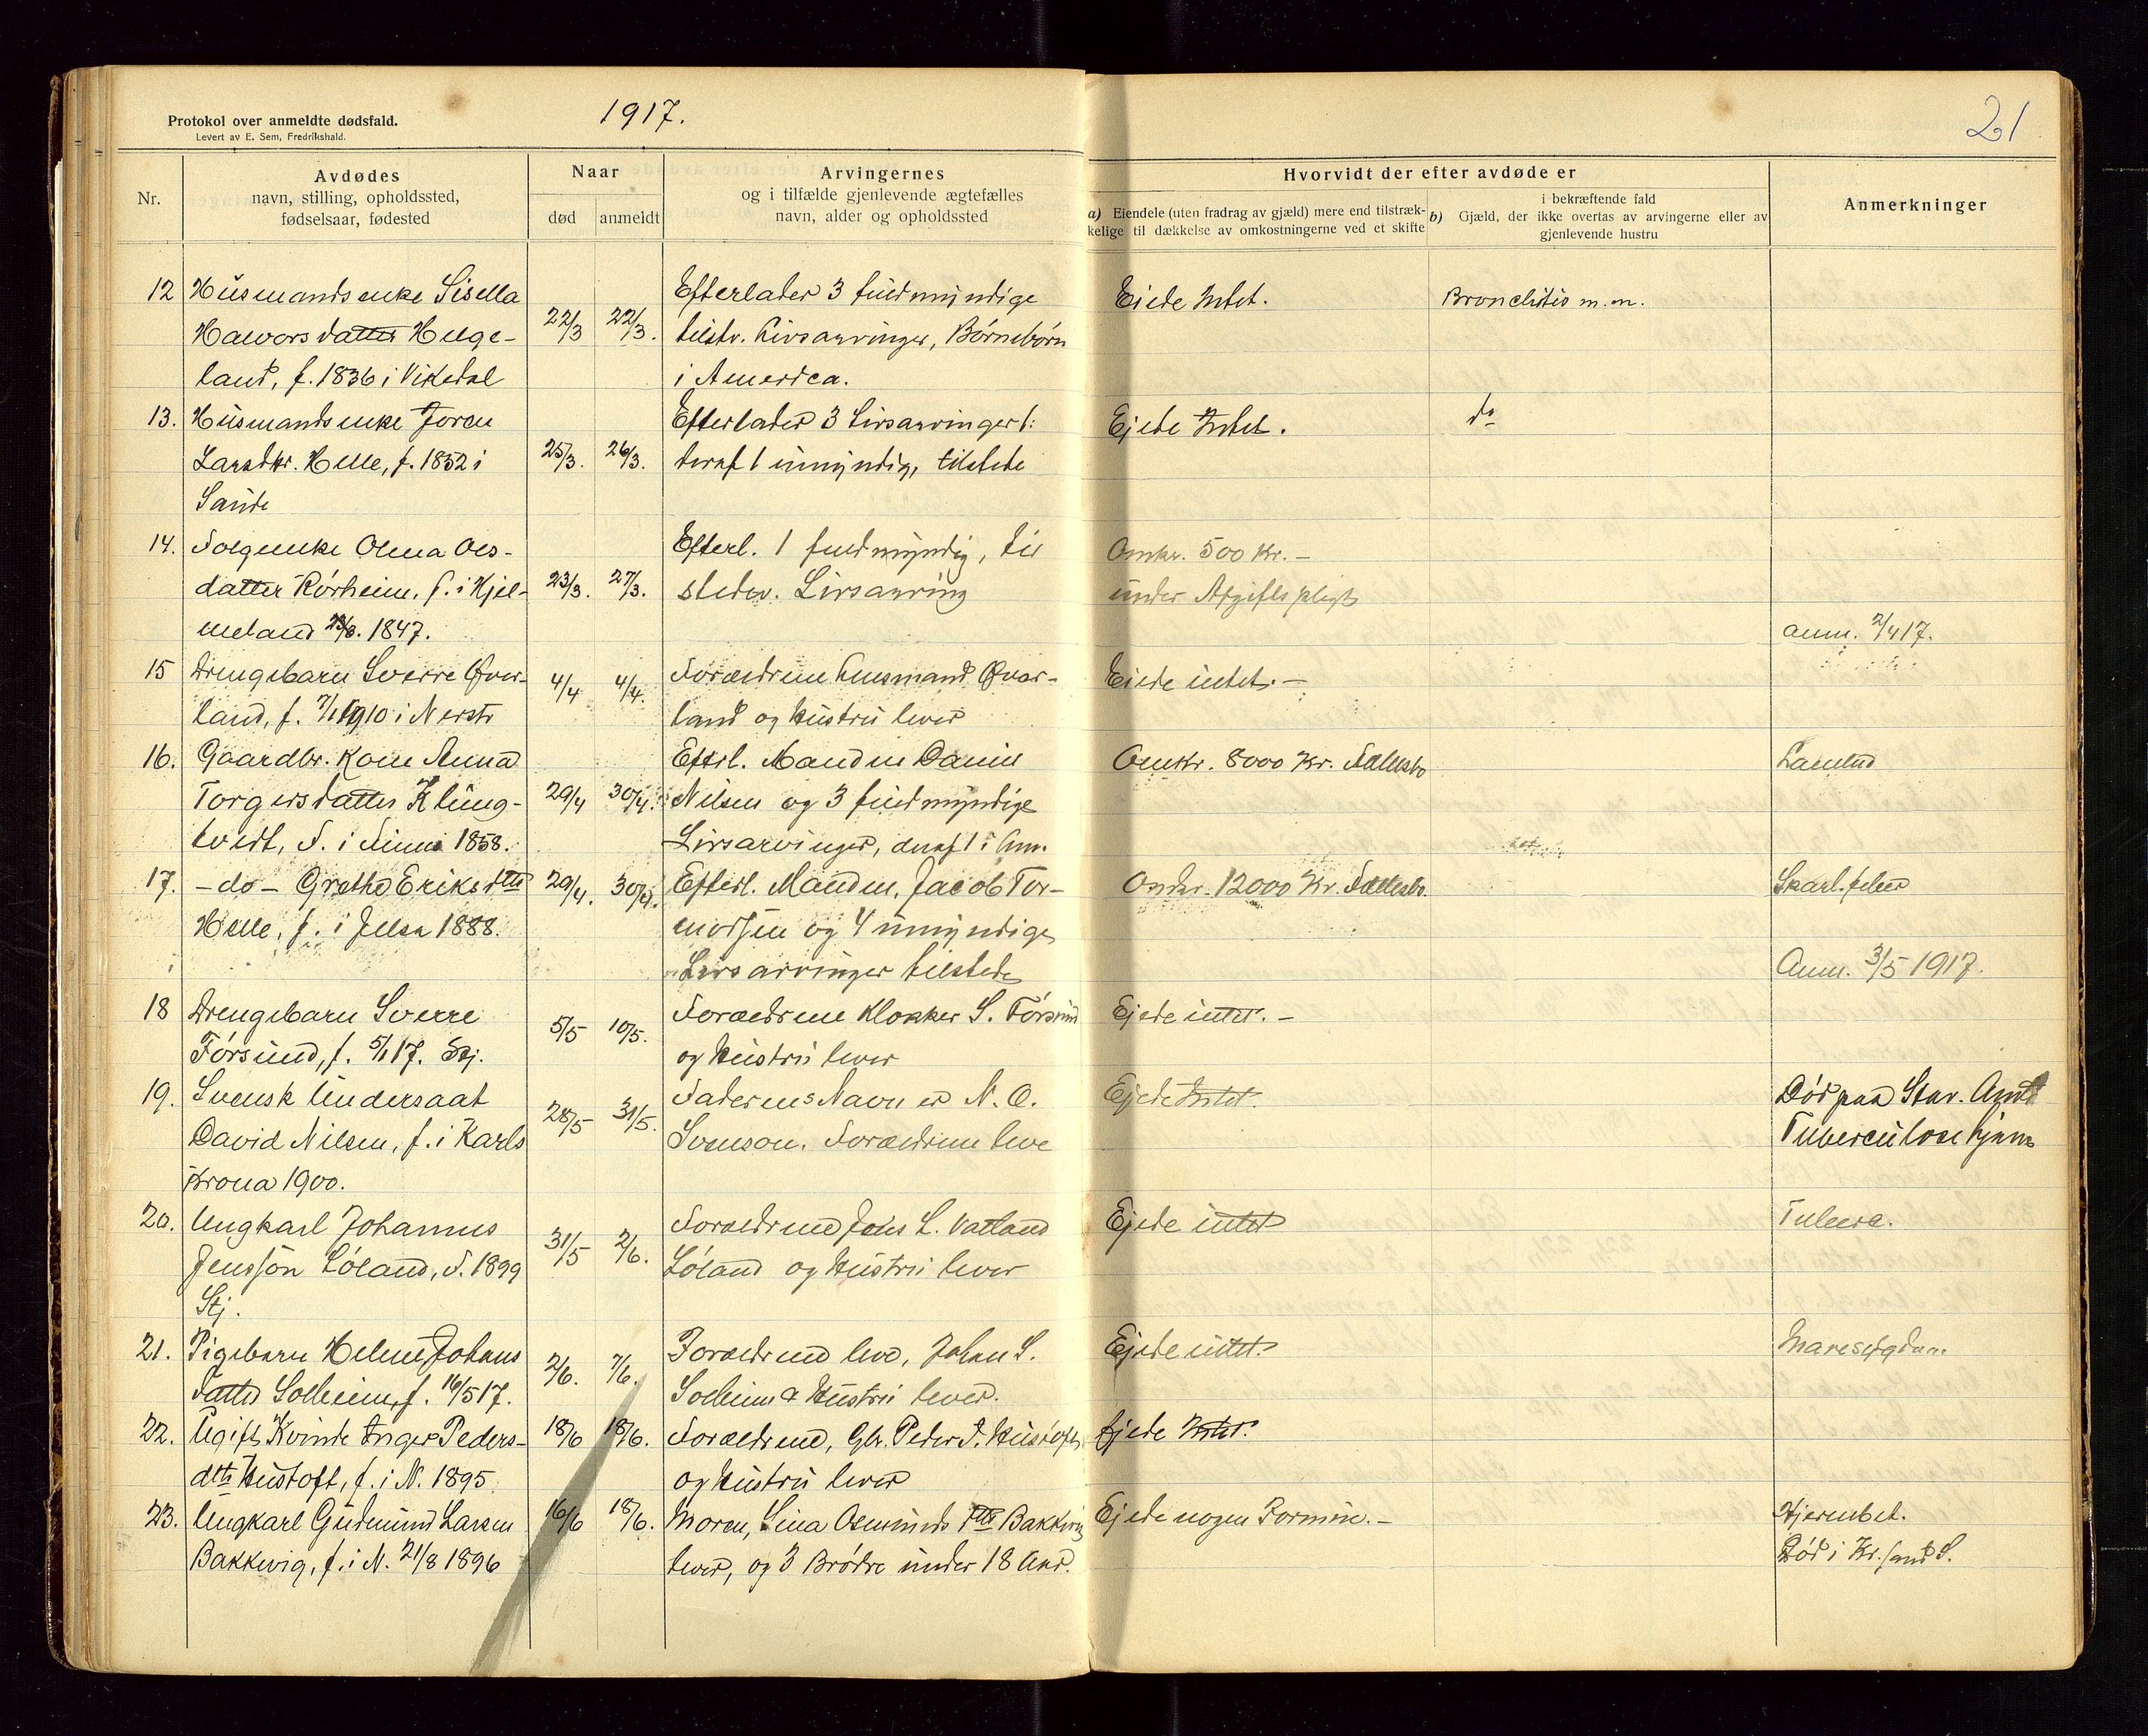 Protokol over anmeldte dødsfald.
Levert av E. Sem, Fredrikshald.
1917.
21
Nr.
Avdødes
navn, stilling, opholdssted,
fødselsaar, fødested
Naar
død
anmeldt
Arvingernes
og i tilfælde gjenlevende ægtefælles
navn, alder og opholdssted
Hvorvidt der efter avdøde er
a) Eiendele (uten fradrag av gjæld) mere end tilstræk-
kelige til dækkelse av omkostningerne ved et skifte
i bekræftende fald
b) Gjæld, der ikke overtas av arvingerne eller av
gjenlevende hustru
Anmerkninger
12 Husmandsenke Sisella Efterlader 3 fuldmyndige Eiede Intet. Bronchitis m.m.
Halvorsdatter Helge- 22/3 22/3. tilstv. Livsarvinger, Børnebørn
land, f. 1836 i Vikedal i America.
13. Husmandsenke Joren Efterlader 3 Livsarvinger Ejede Intet. do
Larsdtr. Helle, f. 1852 i 25/3. 26/3. deraf 1 umyndig, tilstede
Sande
14. Folgeenke Olena Ols- Efterl. 1 fuldmyndig, til Omkr. 500 Kr. –
datter Rørheim, f. i Hjel- 23/3. 27/3. stedev. Livsarving under Afgiftspligt
meland 1847. anm. 2/4 17.
15 Drengebarn Sverre Øver- 4/4 4/4. Forældrene husmand Øver- Eiede intet. –
land, f. 1910 i Nerstr land og Hustru lever
16. Gaardbr. Kone Anna Efterl. Manden Daniel Omkr. 8000 Kr. Fællesbo
Torgersdatter Kling- 29/4 30/4. Nilsen og 3 fuldmyndige
tvedt, f. i 1858. Livsarvinger, deraf 1 i Am.
17. – do – Grethe Eriksdtr 29/4. 30/4. Efterl. Manden, Jacob Tor- Omkr. 12000 Kr. Fællesbo. Skarl. feber
Helle, f. i Jelsa 1888. modsen og 4 umyndige
Livsarvinger tilstede Anm. 3/5 1917.
18 Drengebarn Sverre 5/5 10/5. Forældrene Klokker S. Førsund Ejede intet. –
Førsund, f. 5/1 17. Stj. og Hustru lever
19. Svensk Undersaat 28/5 31/5. Faderens Navn er N. O. Ejede Intet. Død paa Stav. Amts
David Nilsen, f. i Karls Svenson. Forældrene leve Tuberculosehjem
krona 1900.
20. Ungkarl Johannes 31/5 2/6. Forældrene Jens L. Vatland Ejede intet Tuberc.
Jensson Løland, f. 1899 Løland og Hustru lever
Stj.
21. Pigebarn Helene Johans 2/6. 7/6. Forældrene leve, Johan S. Ejede intet
datter Solheim, f. 16/5 17. Solheim & Hustru lever.
22. Ugift Kvinde Inger Peders- 18/6 18/6. Forældrene, Gbr. Peder P. Hustoft, Ejede Intet.
dtr Hustoft, f. i N. 1895. og Hustru lever
23. Ungkarl Gudmund Larsen 16/6 18/6. Moren, Sina Osmundsdtr Bakkevig Ejede nogen Formue. – Hjernebet.
Bakkevig, f. i N. 21/8 1896 lever, og 3 Brødre under 18 Aar. Død i Kr.sand S.